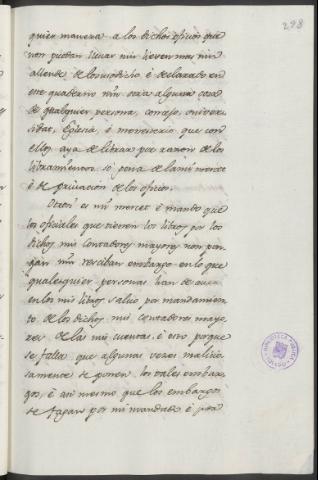 298
quier manera a los dichos oficios que
non puedan llevar nin lieven mas nin
allende de lo susodicho é declarado en
este quaderno nin otra alguna cosa
de qualquier persona, concejo, universi
citat, Eglesia, é monesterio que con
ellos aya de librar por razon de los
libramientos so pena de la mi merced
é de privacion de los oficios.
Otrosi es mi merced é mando que
los oficiales que tienen los libros por los
dichos mis contadores mayores non pon
gan nin resciban embargo en lo que
qualesquier personas han de aver
en los mis libros salvo por mandamien
to de los dichos mis contadores mayo
res de las mis cuentas, é esto porque
se falla que algunas veces malicio
samente se ponen los tales embar
gos, é asi mesmo que los embargos
se fagan por mi mandado é por
BIBLIOTECA